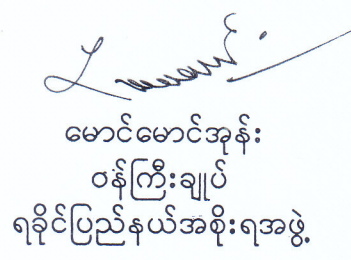 မောင်မောင်အုန်း
ဝန်ကြီးချုပ်
ရခိုင်ပြည်နယ်အစိုးရအဖွဲ့